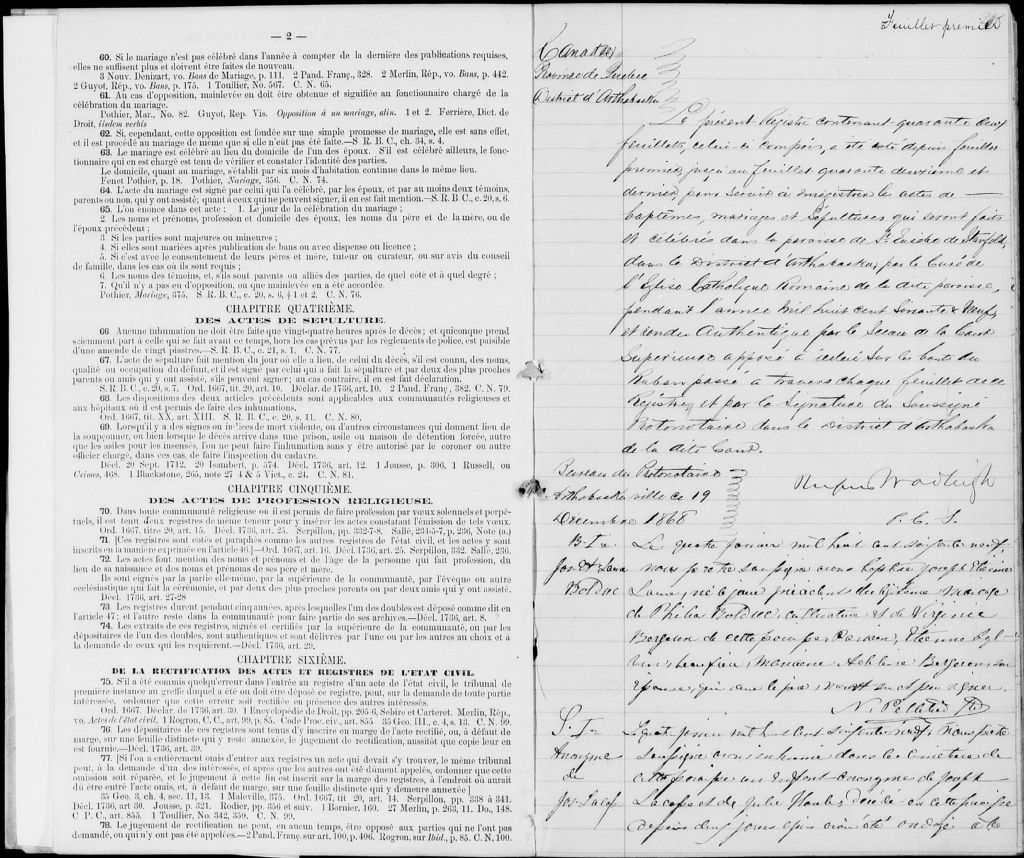 — 2 —
60. Si le mariage n'est pas célébré dans l'année à compter de la dernière des publications requises,
elles ne suffisent plus et doivent être faites de nouveau.
3 Nouv. Denizart, vo. Bans de Mariage, p. 111. 2 Pand. Franç., 328. 2 Merlin, Rép., vo. Bans, p. 442.
2 Guyot, Rép., vo. Bans, p. 175. 1 Toullier, No. 567. C. N. 65.
61. Au cas d'opposition, mainlevée en doit être obtenue et signifiée au fonctionnaire chargé de la
célébration du mariage.
Pothier, Mar., No. 82. Guyot, Rep. Vis. Opposition à un mariage, alin. 1 et 2. Ferrière, Dict. de
Droit, iisdem verbis
62. Si, cependant, cette opposition est fondée sur une simple promesse de mariage, elle est sans effet,
et il est procédé au mariage de meme que si elle n'eût pas été faite.—S R. B. C., ch. 34, s. 4.
63. Le mariage est célébré au lieu du domicile de l'un des époux. S'il est célébré ailleurs, le fonc-
tionnaire qui en est chargé est tenu de vérifier et constater l'identité des parties.
Le domicile, quant au mariage, s'établit par six mois d'habitation continue dans le même lieu.
Fenet Pothier, p. 18. Pothier, Mariage, 356. C. N. 74.
64. L'acte du mariage est signé par celui qui l'a célébré, par les époux, et par au moins deux témoins,
parents ou non, qui y ont assisté; quant à ceux qui ne peuvent signer, il en est fait mention.—S. R. B. C., c. 20, s. 6.
65. L'on énonce dans cet acte : 1. Le jour de la célébration du mariage ;
2. Les noms et prénoms, profession et domicile des époux, les noms du père et de la mère, ou de
l'époux précédent ;
3. Si les parties sont majeures ou mineures ;
4. Si elles sont mariées après publication de bans ou avec dispense ou licence ;
5. Si c'est avec le consentement de leurs pères et mère, tuteur ou curateur, ou sur avis du conseil
de famille, dans les cas où ils sont requis ;
6. Les noms des témoins, et, s'ils sont parents ou alliés des parties, de quel côté et à quel degré ;
7. Qu'il n'y a pas eu d'opposition, ou que mainlevée en a été accordée.
Pothier, Mariage, 375. S. R. B. C., c. 20, s. 6, § 1 et 2. C. N. 76.
CHAPITRE QUATRIÈME.
DES ACTES DE SEPULTURE.
66 Aucune inhumation ne doit être faite que vingt-quatre heures après le décès; et quiconque prend
sciemment part à celle qui se fait avant ce temps, hors les cas prévus par les règlements de police, est passible
d'une amende de vingt piastres.—S. R. B. C., c. 21, s. 1. C. N. 77.
67. L'acte de sépulture fait mention du jour où elle a lieu, de celui du décès, s'il est connu, des noms,
qualité ou occupation du défunt, et il est signé par celui qui a fait la sépulture et par deux des plus proches
parents ou amis qui y ont assisté, s'ils peuvent signer; au cas contraire, il en est fait déclaration.
S. R. B. C., c. 20, s. 7. Ord. 1667, tit. 20, art. 10. Déclar. de 1736, art. 10. 2 Pand. Franç., 382. C. N. 79.
68. Les dispositions des deux articles précédents sont applicables aux communautés religieuses et
aux hôpitaux où il est permis de faire des inhumations.
Ord. 1667, tit. XX, art. XIII. S. R. B. C., c. 20, s. 11. C. N. 80.
69. Lorsqu'il y a des signes ou indices de mort violente, ou d'autres circonstances qui donnent lieu de
la soupçonner, ou bien lorsque le décès arrive dans une prison, asile ou maison de détention forcée, autre
que les asiles pour les insensés, l'on ne peut faire l'inhumation sans y être autorisé par le coroner ou autre
officier chargé, dans ces cas, de faire l'inspection du cadavre.
Décl. 20 Sept. 1712. 20 Isambert, p. 574. Décl. 1736, art. 12. 1 Jousse, p. 306. 1 Russell, on
Crimes, 468. 1 Blackstone, 265, note 27 4 & 5 Vict., c. 24. C. N. 81.
CHAPITRE CINQUIÈME.
DES ACTES DE PROFESSION RELIGIEUSE.
70. Dans toute communauté religieuse où il est permis de faire profession par vœux solennels et perpé-
tuels, il est tenu deux registres de meme teneur pour y insérer les actes constatant l'émission de tels vœux.
Ord. 1667, titre 20, art. 15. Décl. 1736, art. 25. Serpillon, pp. 332-7-8. Sallé, 234-5-7, p. 236, Note (a.)
71. [Ces registres sont cotés et paraphés comme les autres registres de l'état civil, et les actes y sont
inscrits en la manière exprimée en l'article 46.]—Ord. 1667, art. 16. Décl. 1736, art. 25. Serpillon, 332. Sallé, 236.
72. Les actes font mention des noms et prénoms et de l'âge de la personne qui fait profession, du
lieu de sa naissance et des noms et prénoms de ses père et mère.
Ils sont signés par la partie elle-même, par la supérieure de la communauté, par l'évêque ou autre
ecclésiastique qui fait la cérémonie, et par deux des plus proches parents ou par deux amis qui y ont assisté.
Décl. 1736, art. 27-28
73. Les registres durent pendant cinq années, après lesquelles l'un des doubles est déposé comme dit en
l'article 47; et l'autre reste dans la communauté pour faire partie de ses archives.—Décl. 1736, art. 8.
74. Les extraits de ces registres, signés et certifiés par la supérieure de la communauté, ou par les
dépositaires de l'un des doubles, sont authentiques et sont délivrés par l'une ou par les autres au choix et à
la demande de ceux qui les requièrent.—Décl. 1736, art. 29.
CHAPITRE SIXIÈME.
DE LA RECTIFICATION DES ACTES ET REGISTRES DE L'ETAT CIVIL.
75. S'il a été commis quelqu'erreur dans l'entrée au registre d'un acte de l'état civil, le tribunal de
première instance au greffe duquel a été ou doit être déposé ce registre, peut, sur la demande de toute partie
intéressée, ordonner que cette erreur soit rectifiée en présence des autres intéressés.
Ord. 1667. Déclar. de 1736, art. 30. 1 Encyclopédie de Droit, pp. 205 6, Sebire et Carteret. Merlin, Rép.,
vo. Actes de l'état civil, 1 Rogron, C. C., art. 99, p. 85. Code Proc. civ., art. 855 35 Geo. III., c. 4, s. 13. C. N. 99.
76. Les dépositaires de ces registres sont tenus d'y inscrire en marge de l'acte rectifié, ou, à défaut de
marge, sur une feuille distincte qui y reste annexée, le jugement de rectification, aussitôt que copie leur en
est fournie.—Décl. 1736, art. 30.
77. [Si l'on a entièrement omis d'entrer aux registres un acte qui devait s'y trouver, le même tribunal
peut, à la demande d'un des intéressés, et après que les autres ont été dûment appelés, ordonner que cette
omission soit réparée, et le jugement à cette fin est inscrit sur la marge des registres, à l'endroit où aurait
dû être entré l'acte omis, et, à défaut de marge, sur une feuille distincte qui y demeure annexée]
35 Geo. 3, ch. 4, sec. 11, 13. 1 Maleville, 375. Ord. 1667, tit 20, art. 14. Serpillon, pp. 338 à 341.
Décl. 1736, art 30. Jousse, p. 321. Rodier, pp. 356 et suiv. 1 Bornier, 160. 27 Merlin, p. 263, 11. Do., 148.
C P. C., art. 855. 1 Toullier, No. 342, 350. C. N. 99.
78. Le jugement de rectification ne peut, en aucun temps, être opposé aux parties qui ne l'ont pas
demandé, ou qui n'y ont pas été appelées.—2 Pand. Franç. sur art. 100, p. 406. Rogron, sur Ibid., p. 85. C. N. 100.
Feuillet premier
Canada
Province de Quebec
District d'Arthabaska
Le présent Registre contenant quarante deux
feuillets, celui-ci compris, a été coté depuis feuillet
premier, jusqu'au feuillet quarante deuxième et
dernier, pour servir à enregistrer les actes de
baptêmes, mariages et sépultures qui seront faits
et célébrés dans la paroisse de St Eusèbe de Stanfold
dans le District d'Arthabaska, par le Curé de
l'Eglise Catholique Romaine de la dite paroisse,
pendant l'année Mil huit cent soixante & neuf,
et rendu Authentique par le Sceau de la Cour
Superieure apposé à icelui sur les bouts du
Ruban passé à travers chaque feuillet de ce
Régistre, et par la Signature du Soussigné
Protonotaire dans le District d'Arthabaska
de la dite Cour.
Bureau du Protonotaire
Arthabaskaville ce 19
Décembre 1868
Rufus Wadleigh
P. C. S.
Jos. Et. Lana
Bolduc
Le quatre janvier mil huit cent soixante neuf,
nous prêtre soussigné avons baptisé Joseph Etienne
né ce jour précédent du légitime mariage
de Philias Bolduc, cultivateur et de Virginie
Bergeron de cette paroisse. Parrain, Etienne
beaufrère, Marraine Bergeron son
Epouse, qui ainsi que le père n'ont su signer.
N. Pelletier Ptre
S. I
Anonyme
de
Le quatre janvier mil huit cent soixante neuf, Nous prêtre
soussigné avons inhumé dans le cimetière de
cette paroisse un Enfant anonyme de Joseph
et de Julie décédé en cette paroisse
depuis deux jours après avoir été ondoyé à la